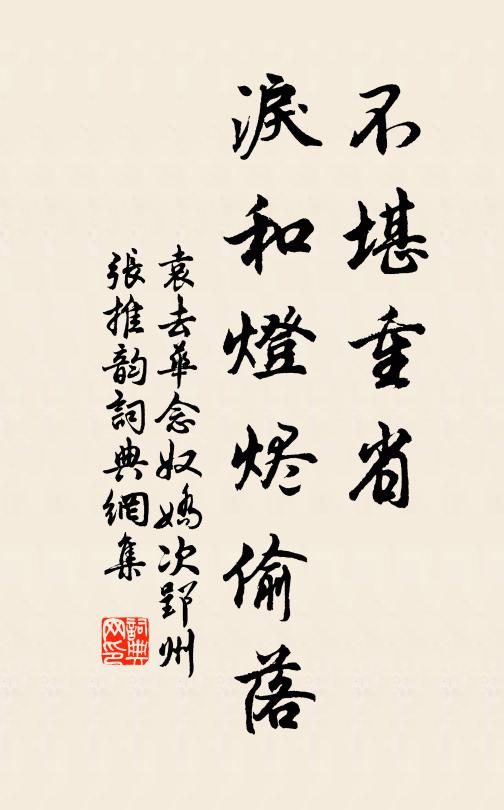 不堪重省
淚和燈烬偷落
袁去華念奴嬌次郢州
張推韵詞典網集
詞典网印